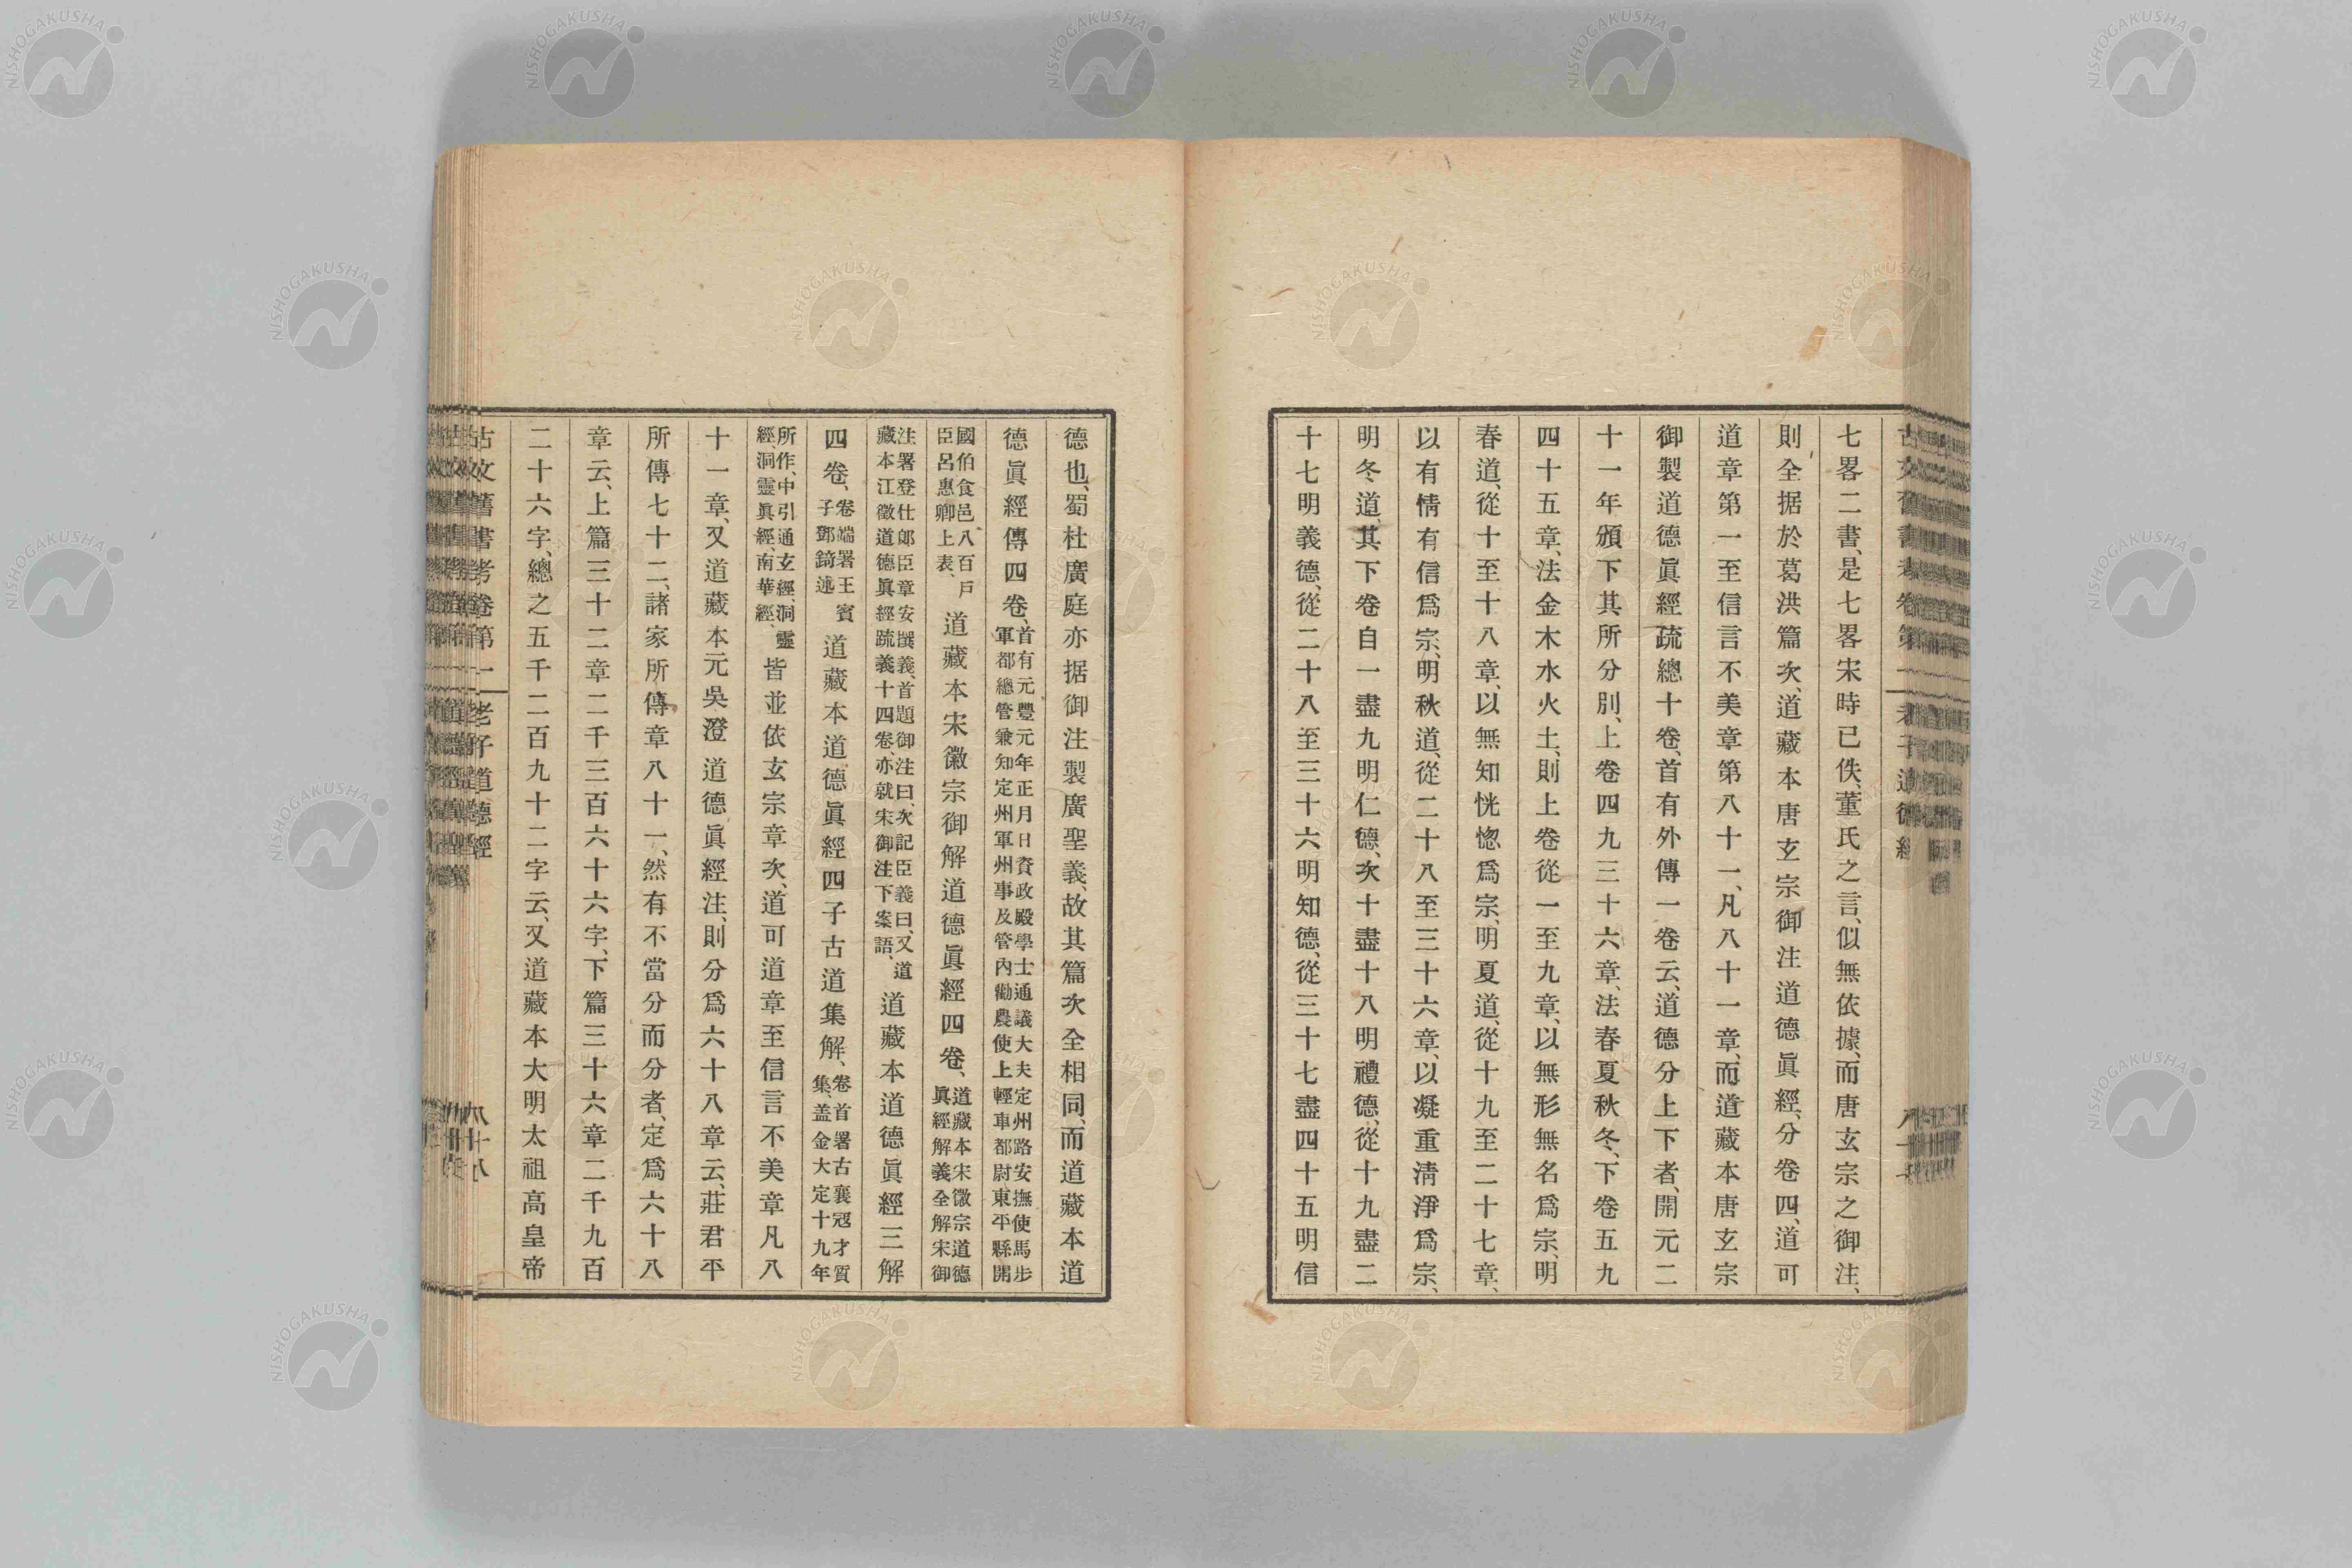 七畧二書、是七畧宋時已佚、董氏之言、似無依據、而唐玄宗之御注、
則全据於葛洪篇次、道藏本唐玄宗御注道德眞經、分卷四、道可
道章第一至信言不美章第八十一、凡八十一章、而道藏本唐玄宗
御製道德眞經疏總十卷、首有外傳一卷云、道德分上下者、開元二
十一年頒下其所分別、上卷四九三十六章、法春夏秋冬、下卷五九
四十五章、法金木水火土、則上卷從一至九章、以無形無名爲宗、明
春道、從十至十八章、以無知恍惚爲宗、明夏道、從十九至二十七章、
以有情有信爲宗、明秋道、從二十八至三十六章、以凝重淸淨爲宗、
明冬道、其下卷自一盡九明仁德、次十盡十八明禮德、從十九盡二
十七明義德、從二十八至三十六明知德、從三十七盡四十五明信
德也、蜀杜廣庭亦据御注製廣聖義、故其篇次全相同、而道藏本道
德眞經傳四卷、首有元豐元年正月日資政殿學士通議大夫定州路安撫使馬步
軍都總管兼知定州軍州事及管內勸農使上輕車都尉東平縣開
國伯食邑八百戶
臣呂惠卿上表、道藏本宋徽宗御解道德眞經四卷、道藏本宋徽宗道德
眞經解義全解宋御
注署登仕郎臣章安撰義、首題御注曰、次記臣義曰、又道
藏本江徵道德眞經疏義十四卷、亦就宋御注下案語、道藏本道德眞經三解
四卷、卷端署王賓
子鄧錡述道藏本道德眞經四子古道集解、卷首署古襄冦才質
集、盖金大定十九年
所作、中引通玄經、洞靈
經、洞靈眞經、南華經、皆並依玄宗章次、道可道章至信言不美章凡八
十一章、又道藏本元吳澄道德眞經注、則分爲六十八章云、莊君平
所傳七十二、諸家所傳章八十一、然有不當分而分者、定爲六十八
章云、上篇三十二章二千三百六十六字、下篇三十六章二千九百
二十六字、總之五千二百九十二字云、又道藏本大明太祖高皇帝
古文舊書考卷第一 老子道德經